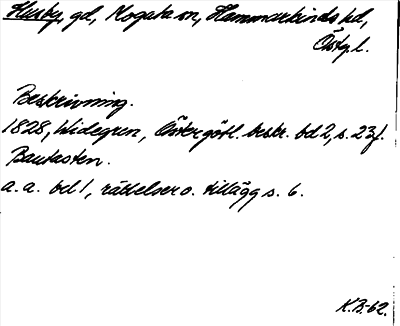 Husby, gd, Mogata sn, Hammarkinds hd,
Östg. l.
Beskrivning.
1828, Widegren, Östergötl. beskr. bd 2, s. 23f.
Bautasten.
a. a. bd 1, rättelser o. tillägg s. 6.
K.B-62.